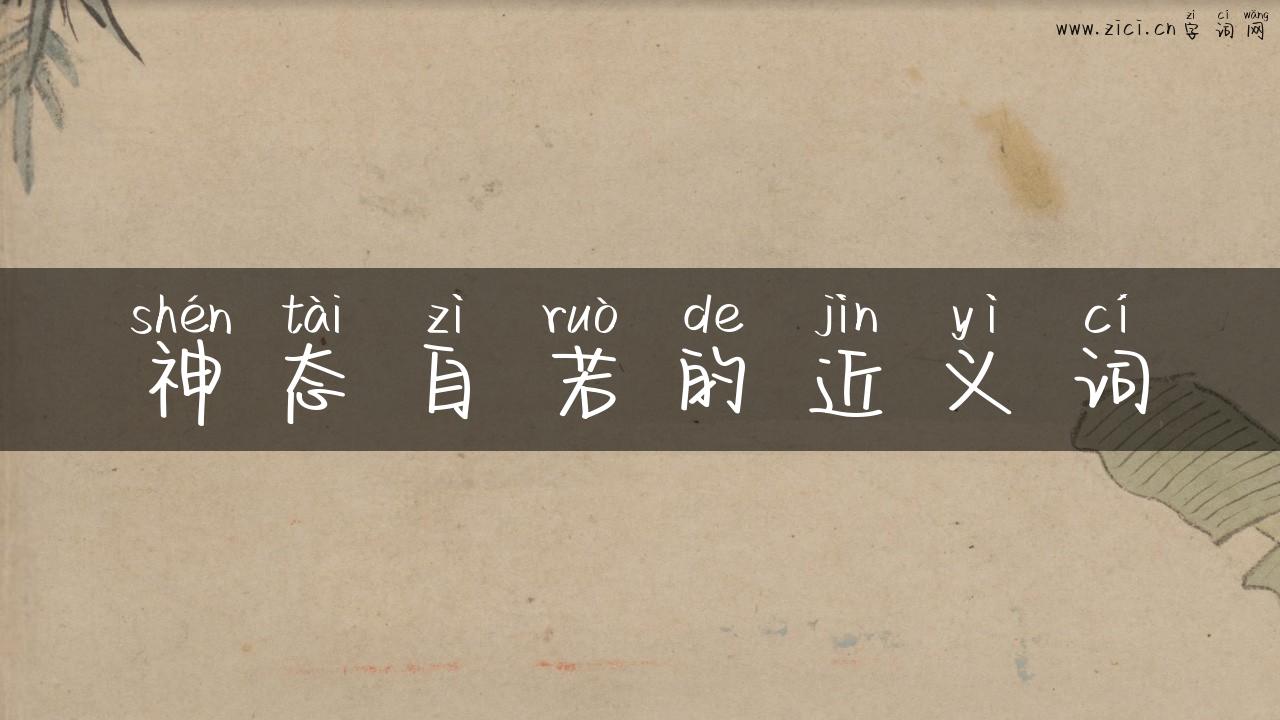 zì cí wǎng
www.zici.cn 字词网
shén tài zì ruò de jìn yì cí
神态自若的近义词